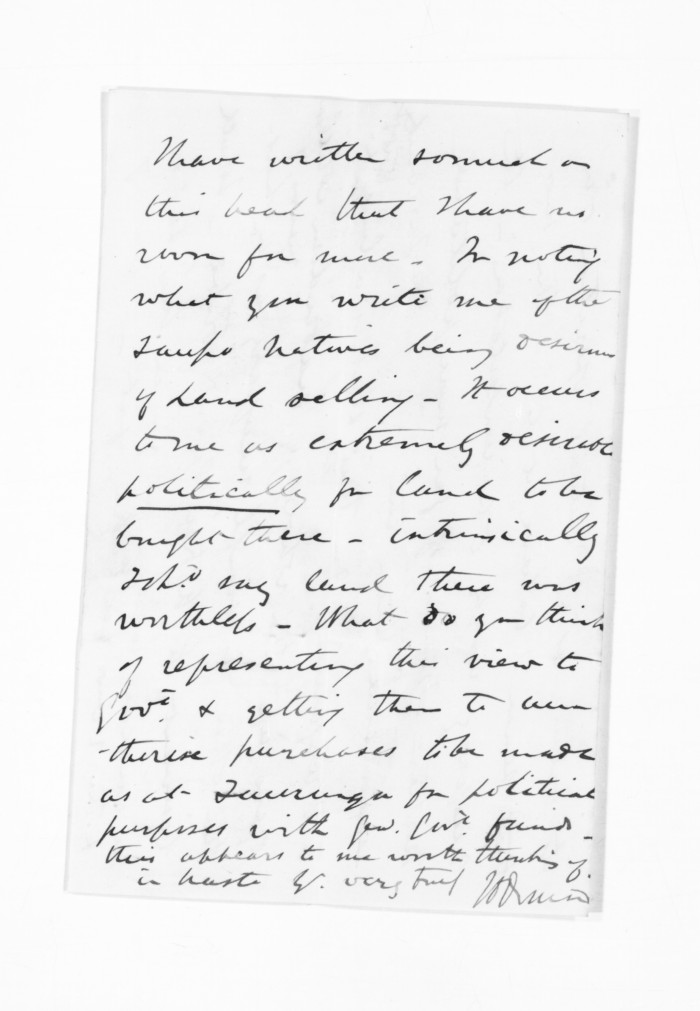 I have written so much on
this head that I have no
room for more - In noting
what you write me of the
Taupo Natives being desirous
of Land selling - It occurs
to me as extremely desirable
politically for land to be
bought there - intrinsically
I shd. say land there was
worthless - What do you think
of representing this view to
Govt. & getting them to au
-thorise purchases to be made
as at Tauranga for political
purposes with Gen. Govt. funds -
this appears to me worth thinking of.
in haste Yr. very truly JD Ormond